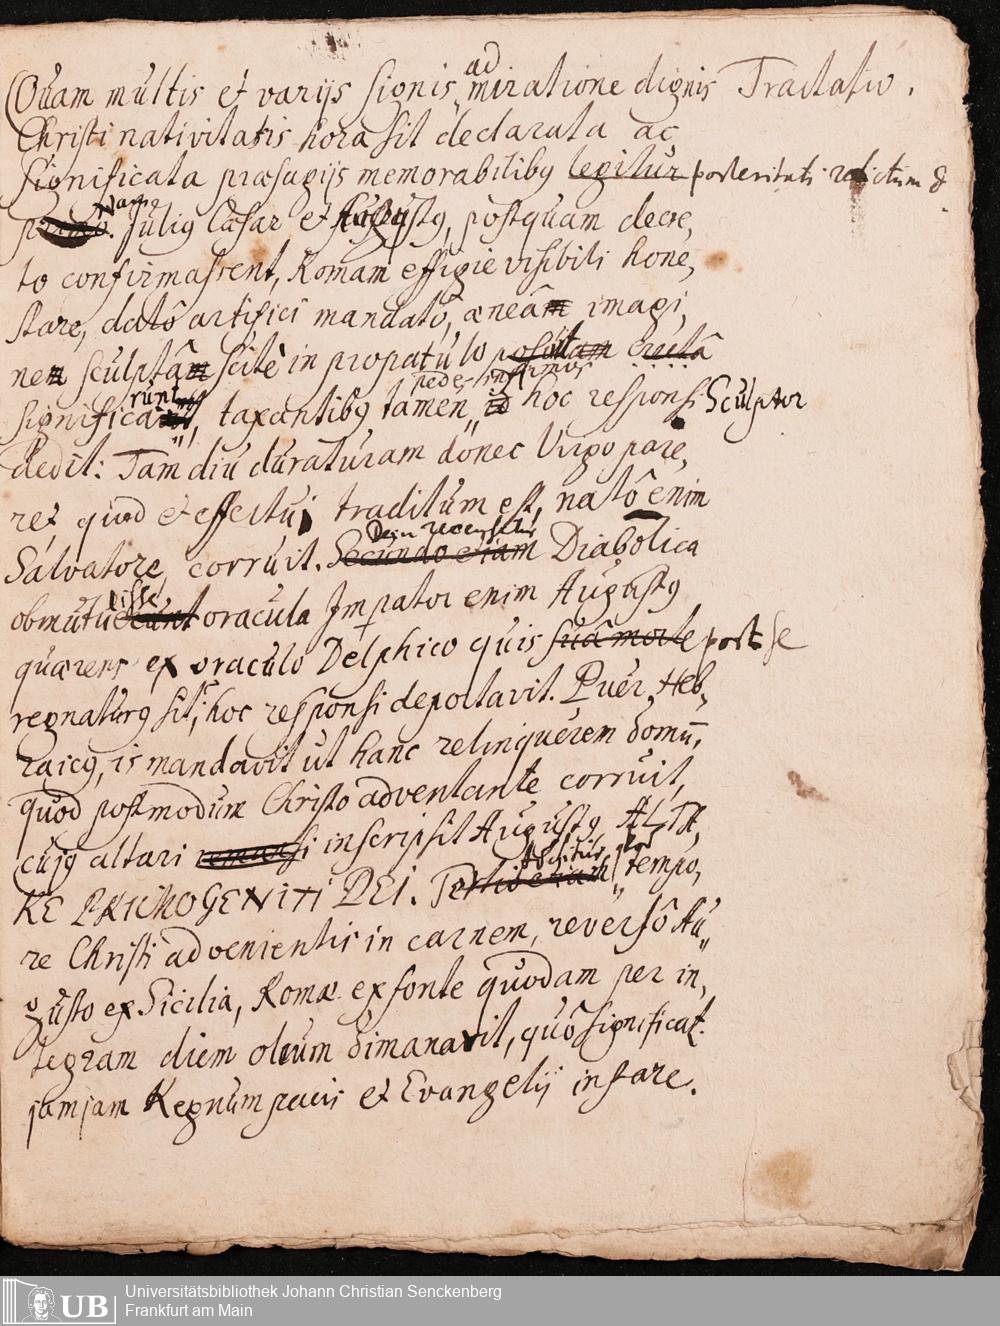 Quam multis et varijs signis admiratione dignis Tractatio.
Christi nativitatis hora sit declarata ac
significata præsagijs memorabilibq legitur posteritati relictum &
primò. Nam Juliq Cæsar et Augustq, postquam decre,
to confirmassent, Romam effigie visibili hone,
stare, datô artifici mandatô, æneâm imagi,
nem sculptâm scitè in propatulo positam erectâ
significarunt, taxantibq tamen hoc responsi Sculptor
dedit: Tam diu duraturam donec Virgo pare,
ret quod et effectui traditum est, natô enim
Salvatore, corruit. Secundo etiam Dein recensetur Diabolica
obmutuisse oracula Imperator enim Augustq
quærens ex oraculo Delphico quis suâ morte post se
regnaturq sit, hoc responsi deportavit. Puer Heb,
raicq, is mandavit ut hanc relinquerem domū,
quod postmodum Christo adventante corruit,
cujq altari inscripsit Augustq ALTA,
RE PRIMOGENITI DEI. Tertio etiam tempo,
re Christi advenientis in carnem, reversô Au,
gusto ex Sicilia, Romæ ex fonte quodam per in,
tegram diem oleum dimanavit, quô significat.
jamjam Regnum pacis et Evangelij instare.
Universitätsbibliothek Johann Christian Senckenberg
UB Frankfurt am Main